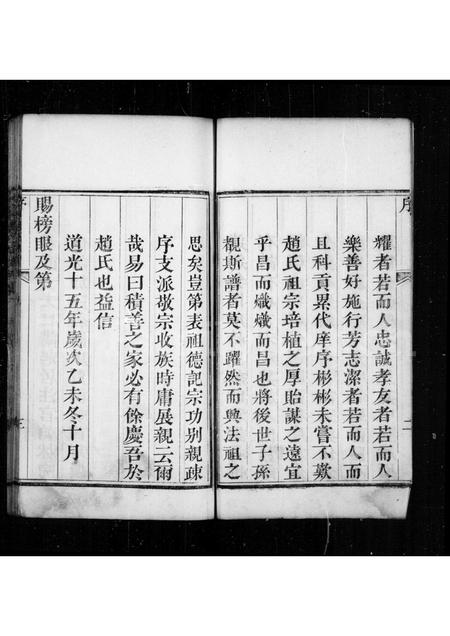 序
耀者若而人忠誠孝友者若而人
樂善好施行芳志潔者若而人而
且科貢累代庠序彬彬未嘗不歎
趙氏祖宗培植之厚貽謀之遠宜
乎昌而熾熾而昌也將後世子孫
覩斯譜者莫不躍然而興法祖之
二
思矣豈第表祖德記宗功別親疎
序支派敬宗收族時庸展親云爾
哉易曰積善之家必有餘慶吾於
趙氏也益信
道光十五年歲次乙未冬十月
賜榜眼及第
序
三